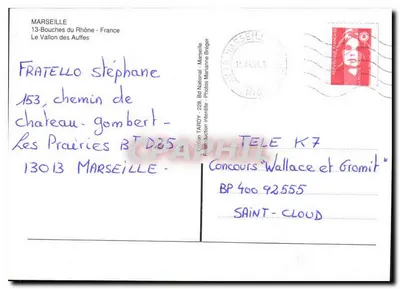 MARSEILLE
13-Bouches du Rhône - France
Le Vallon des Auffes
FRATELLO Stéphane
153, chemin de
chateau-gombert-
Les Prairies BT D25-
13013 MARSEILLE-
Edition TARDY - 228, Bd National - Marseille
Reproduction interdite - Photos Marianne Bréger
TELE K7
Concours "Wallace et Gromit"
BP 400 92555
SAINT-CLOUD